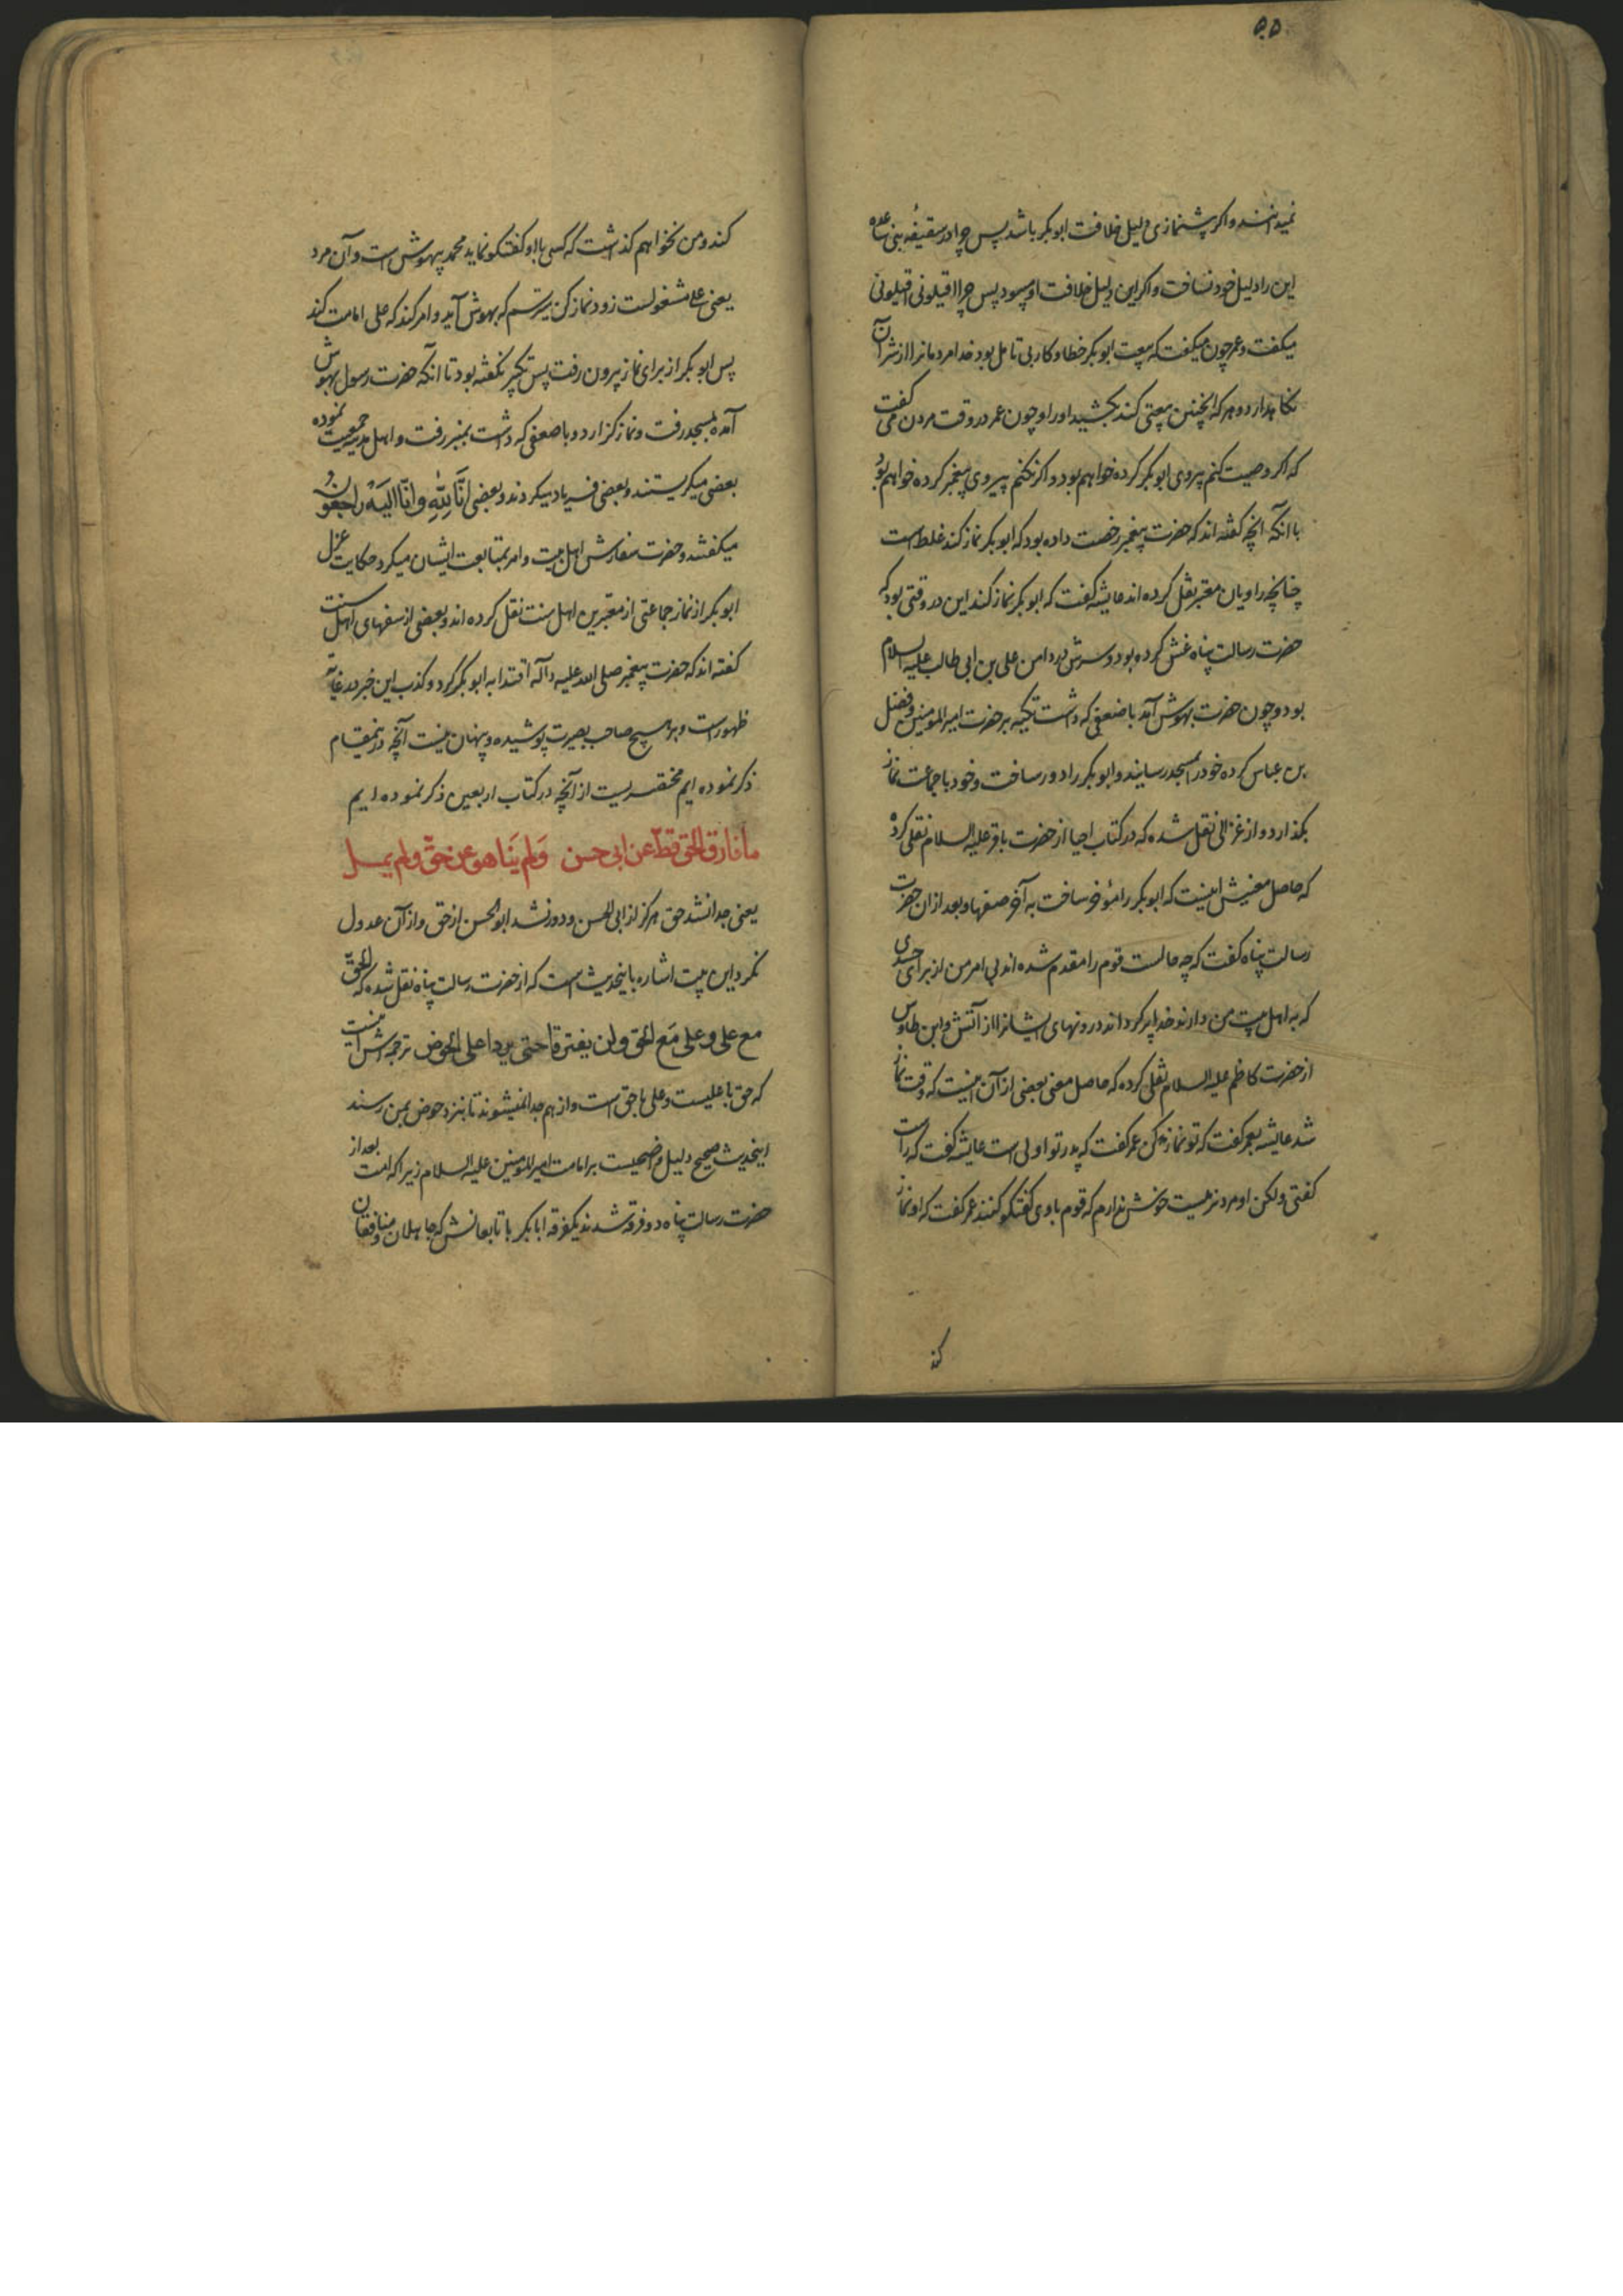 ۵۵
نمیدانند و اکر پشنمازی دلیل خلافت ابوبکر باشد پس چرا در سقیفه بنی ساعده
این را دلیل خود نساخت و اکر این دلیل خلافت او میبود پس چرا اقیلونی اقیلونی
میکفت و عمر چون میکفت که بیعت ابوبکر خطا و کار بی تامل بود خدا مردمانرا از شر آن
نکاهدارد و هر که اینچنین بیعتی کند بکشید او را و چون عمر در وقت مردن می کفت
که اکر وصیت کنم پیروی ابوبکر کرده خواهم بود و اکر نکنم پیروی پیغمبر کرده خواهم بود
با آنکه آنچه کفته اند که حضرت پیغمبر رخصت داده بود که ابوبکر نماز کند غلط است
چنانچه راویان معتبر نقل کرده اند عایشه کفت که ابوبکر نماز کند این در وقتی بود که
حضرت رسالت پناه غش کرده بود و سرش در دامن علی بن ابی طالب علیه السلام
بود و چون حضرت بهوش آمد با ضعفی که داشت تکیه بر حضرت امیرالمومنین و فضل
بن عباس کرده خود را بمسجد رسانید و ابوبکر را دور ساخت و خود با جماعت نماز
بکذارد و از غزالی نقل شده که در کتاب احیا از حضرت باقر علیه السلام نقل کرده
که حاصل معنیش اینست که ابوبکر را مؤخر ساخت به آخر صفها و بعد از ان حضرت
رسالت پناه کفت که چه حالست قوم را مقدم شده اند بی امر من از برای حسدی
که به اهل بیت من دارند خدا پر کرداند درونهای ایشانرا از آتش و ابن طاوس
از حضرت کاظم علیه السلام نقل کرده که حاصل معنی بعضی از آن اینست که وقت نماز
شد عایشه بعمر کفت که تو نماز کن عمر کفت که پدر تو اولی است عایشه کفت که راست
کفتی ولکن او مرد نرمیست خوش ندارم که قوم با وی کفتکو کنند عمر کفت که او نماز
کند
کند و من نخواهم کذاشت که کسی با او کفتکو نماید محمد بیهوش است و آن مرد
یعنی علی مشغولست زود نماز کن میترسم که بهوش آید و امر کند که علی امامت کند
پس ابوبکر از برای نماز بیرون رفت پس تکبیر نکفته بود تا آنکه حضرت رسول بهوش
آمده بمسجد رفت و نماز کزارد و با ضعفی که داشت بمنبر رفت و اهل مدینه جمعیت نموده
بعضی میکریستند و بعضی فریاد میکردند و بعضی انّا لِلّٰهِ وانّا الیه راجعون
میکفتند و حضرت سفارش اهل بیت و امر بمتابعت ایشان میکرد حکایت عزل
ابوبکر از نماز جماعتی از معتبرین اهل سنت نقل کرده اند و بعضی از سفهای اهل سنت
کفته اند که حضرت پیغمبر صلی الله علیه وآله اقتدا به ابوبکر کرد و کذب این خبر در غایت
ظهور است و بر هیچ صاحب بصیرت پوشیده و پنهان نیست آنچه در ینمقام
ذکر نموده ایم مختصریست از آنچه در کتاب اربعین ذکر نموده ایم
ما فارق الحق قطّ عن ابی حسن وَلم یَنا هو عن حقّ ولم یمل
یعنی جدا نشد حق هرکز از ابی الحسن و دور نشد ابوالحسن از حق و از آن عدول
نکرد این بیت اشاره باینحدیث است که از حضرت رسالت پناه نقل شده که الحقّ
مع علی وعلی مَع الحق ولن یفترقا حتی یردا علی الحوض ترجمه اش اینست
که حق با علیست و علی با حق است و از هم جدا نمیشوند تا بنزد حوض بمن رسند
اینحدیث صحیح دلیل واضحیست بر امامت امیرالمومنین علیه السلام زیرا که امت بعد از
حضرت رسالت پناه دو فرقه شدند یکفرقه ابابکر با تابعانش که جاهلان و منافقان